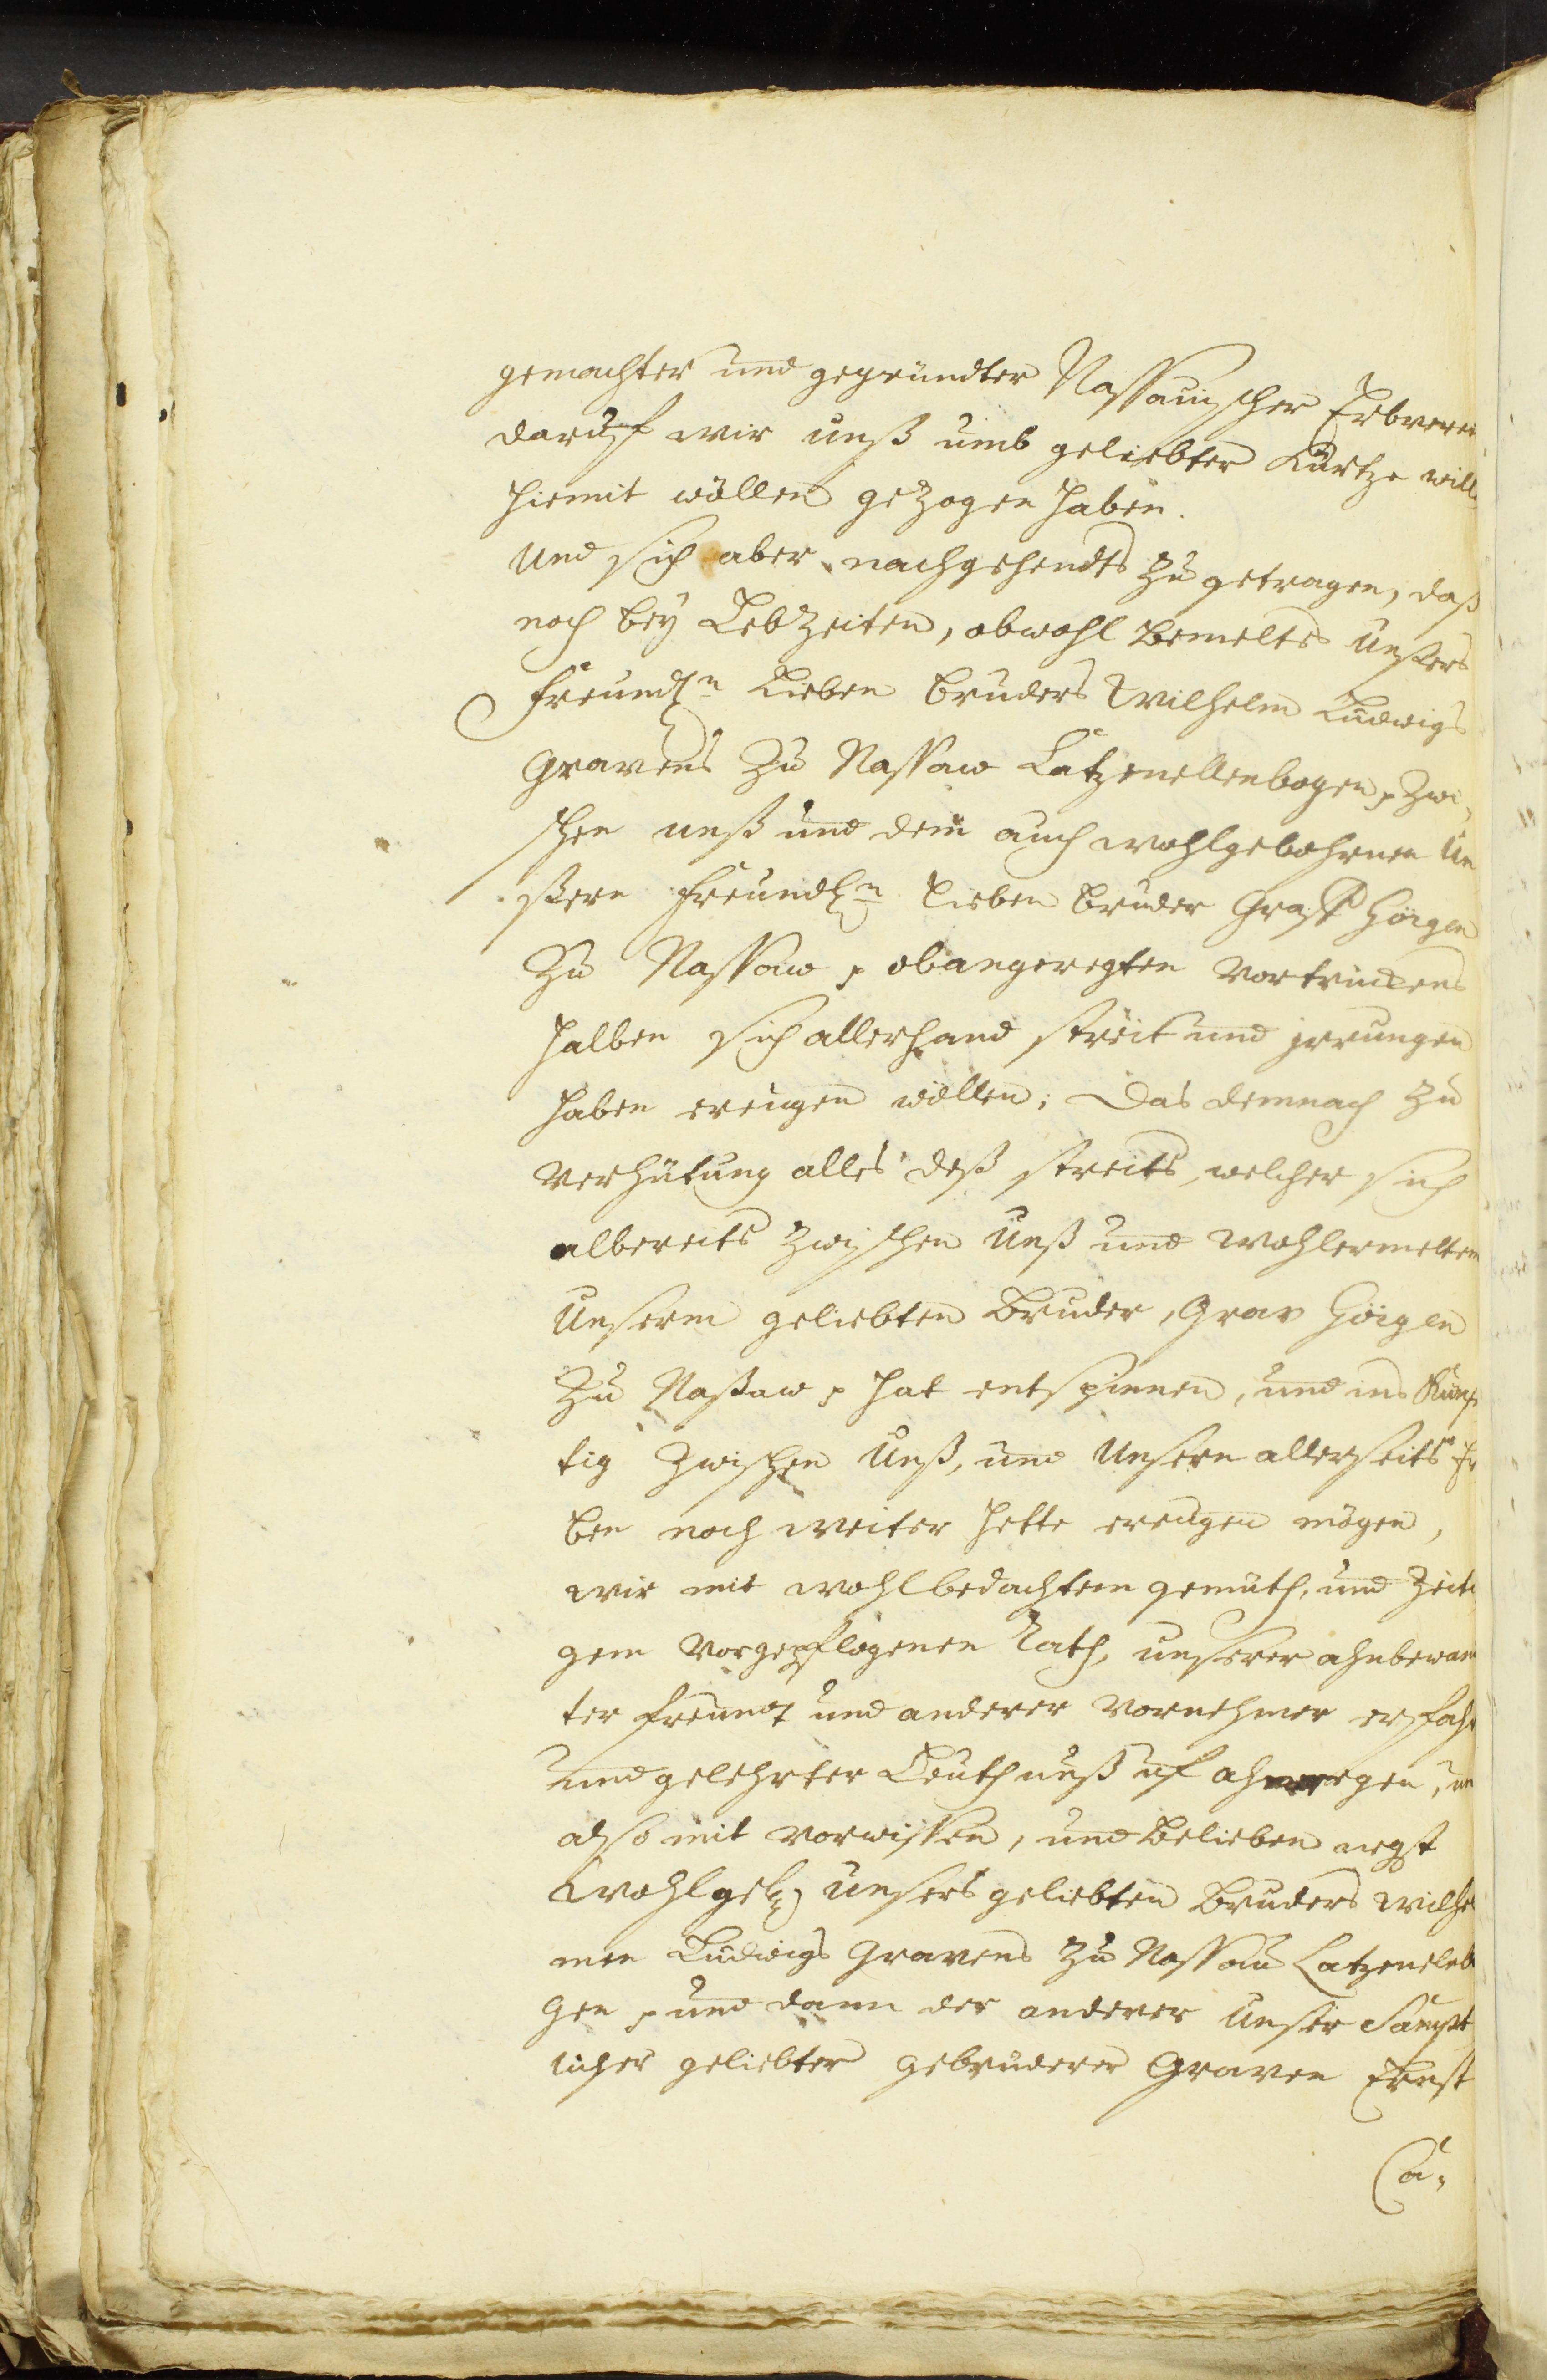 gemachter und gegründter Nassauischer Erbverei
daruf wir unß umb geliebter Kürtze will
hiemit wöllen gezogen haben.
Und sich aber nachgehendts zu getragen, daß
noch bey Lebzeiten, obwohl bemelts unsers
freundln Lieben Bruders Wilhelm Ludwigs
Gravens zu Nassaw Catzenellenbogen p zwi,
schen unß und dem auch wohlgebohrnen Un
ßern freundln lieben Bruder Graff Görgen
zu Nassaw p obangeregten
halben sich allerhand streit und jrrungen
haben ereugen wöllen; Das demnach zu
verhütung alles deß streits, welcher sich
albereits zwischen Unß und wohlermelten
Unserm geliebten Bruder, Grav Görgen
zu Naßaw p hat entspinnen, und ins Künf
tig zwischen Unß, und Unsern allerseits Er
ben noch weiter hette ereugen mögen,
wir mit wohlbedachtem gemüth, und zeiti
gem vorgepflogenen Rath, unserer ahnverwan
ter freundt und anderer vornehmer erfahr
und gelehrter Leuth unß uf
also mit vorwissen, und Belieben
Wohlged. Unsers geliebten Bruders Wilhel
men Ludwigs Gravens zu Nassau Catzenelnb
gen p und dann der anderer Unser Sampt
licher geliebter Gebrüderer Graven Ernst
Ca,